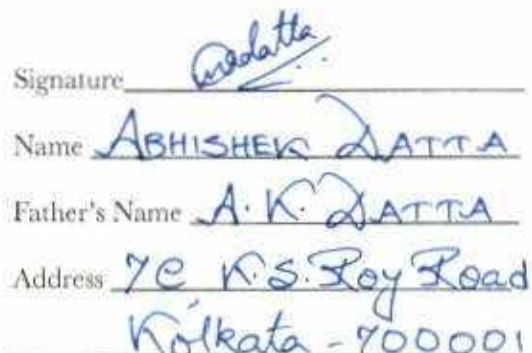 Signature
Name ABHISHEK DATTA
Father's Name A. K. DATTA
Address 7C K. S. Roy Road
Kolkata - 700001